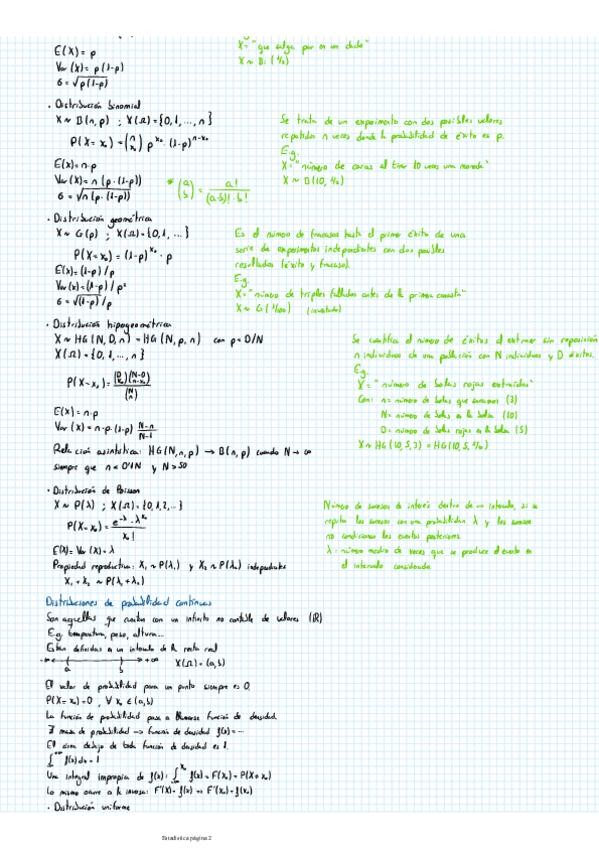 X = "que salga par en un dado"
E(X) = p
X ~ Bi (1/2)
Var (X) = p (1-p)
σ = √p(1-p)
· Distribución binomial
X ~ B(n, p) ; X(Ω) = {0, 1, ..., n}
P(X = x₀) = (n x₀) p^x₀ · (1-p)^n-x₀
E(X) = n·p
Var (X) = n (p · (1-p))
σ = √n (p · (1-p))
* (a b) = a! / (a-b)! · b!
Se trata de un experimento con dos posibles valores
repetidos n veces donde la probabilidad de éxito es p.
E.g.
X = "número de caras al tirar 10 veces una moneda"
X ~ B(10, 1/2)
· Distribución geométrica
X ~ G(p) ; X(Ω) = {0, 1, ...}
P(X = x₀) = (1-p)^x₀ · p
E(X) = (1-p) / p
Var (X) = (1-p) / p²
σ = √(1-p) / p
Es el número de fracasos hasta el primer éxito de una
serie de experimentos independientes con dos posibles
resultados (éxito y fracaso).
E.g.
X = "número de triples fallados antes de la primera canasta"
X ~ G( 1/100) (inventado)
· Distribución hipogeométrica
X ~ HG (N, D, n) = HG (N, p, n) con p = D/N
X(Ω) = {0, 1, ..., n}
P(X = x₀) = (D x₀)(N-D n-x₀) / (N n)
E(X) = n·p
Var (X) = n·p· (1-p) N-n / N-1
Relación asintótica: HG(N, n, p) → B(n, p) cuando N → ∞
siempre que n < 0'1N y N > 50
Se cuantifica el número de éxitos al extraer sin reposición
n individuos de una población con N individuos y D éxitos.
E.g.
X = "número de bolas rojas extraídas"
Con: n = número de bolas que sacamos (3)
N = número de bolas en la bolsa (10)
D = número de bolas rojas en la bolsa (5)
X ~ HG (10, 5, 3) = HG (10, 5, 5/10)
· Distribución de Poisson
X ~ P(λ) ; X(Ω) = {0, 1, 2, ...}
P(X = x₀) = e^-λ · λ^x₀ / x₀!
E(X) = Var (X) = λ
Propiedad reproductiva: X₁ ~ P(λ₁) y X₂ ~ P(λ₂) independientes
X₁ + X₂ ~ P(λ₁ + λ₂)
Número de sucesos de interés dentro de un intervalo, si se
repiten los sucesos con una probabilidad λ y los sucesos
no condicionan los eventos posteriores.
λ = número medio de veces que se produce el evento en
el intervalo considerado.
Distribuciones de probabilidad continuas
Son aquellas que cuentan con un infinito no contable de valores (ℝ)
E.g. temperatura, peso, altura...
Están definidas en un intervalo de la recta real
-∞ a b +∞ X(Ω) = (a, b)
El valor de probabilidad para un punto siempre es 0.
P(X = x₀) = 0 , ∀ x₀ ∈ (a, b)
La función de probabilidad pasa a llamarse función de densidad.
∄ masa de probabilidad → función de densidad f(x) = ...
El área debajo de toda función de densidad es 1.
∫ f(x) dx = 1
Una integral impropia de f(x): ∫ f(x) = F(x₀) = P(X ≤ x₀)
Lo mismo ocurre a la inversa: F'(X) = f(x) ⇒ F'(x₀) = f(x₀)
· Distribución uniforme
Estadística página 2